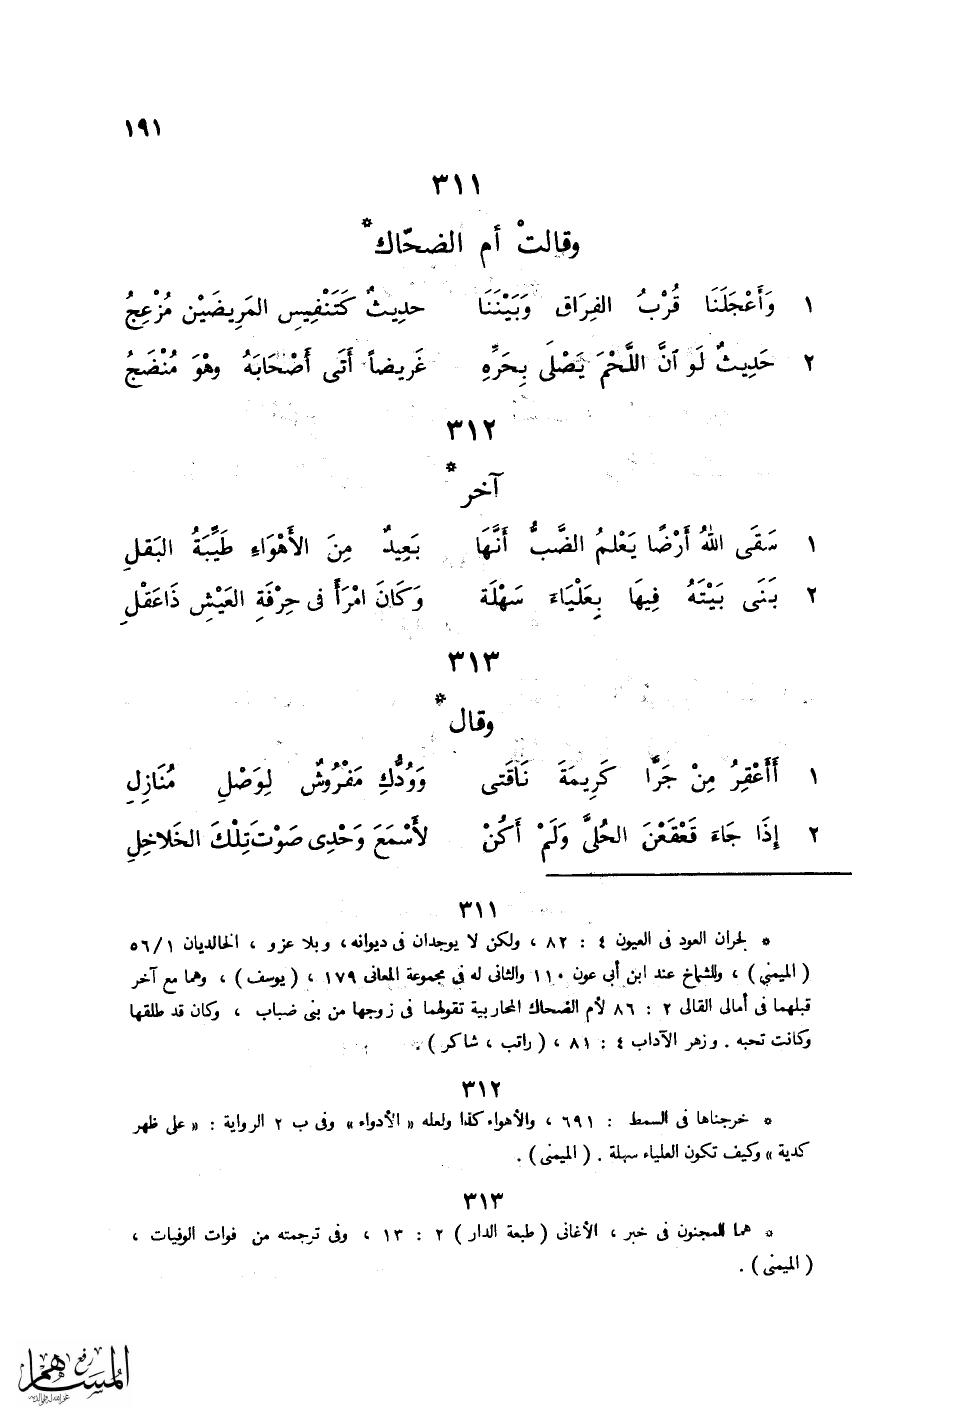 ١٩١
٣١١
وقالتْ أم الضحّاك*
١ وَأَعْجَلَنَا قُرْبُ الفِرَاق وَبَيْنَنَا حدِيثٌ كَتَنْفِيسِ المَرِيضَيْن مُزْعِجُ
٢ حَدِيثٌ لَو آنَّ اللَّحْمَ يَصْلَى بِحَرِّهِ غَرِيضاً أَتَى أَصْحَابَهُ وهْوَ مُنْضَجُ
٣١٢
آخر*
١ سَقَى اللهُ أَرْضًا يَعْلمُ الضَّبُّ أَنَّهَا بَعِيدٌ مِنَ الأَهْوَاءِ طَيِّبَةُ البَقلِ
٢ بَنَى بَيْتَهُ فِيهَا بِعَلْيَاءَ سَهْلَة وَكَانَ امْرَأً فى حِرْفَةِ العَيْشِ ذَاعَقْلِ
٣١٣
وقال*
١ أَأَعْقِرُ مِنْ جَرَّا كَرِيمَةَ نَاقَتى وَوُدُّكِ مَفْرُوشٌ لِوَصْلِ مُنَازِلِ
٢ إِذَا جَاءَ قَعْقَعْنَ الحُلىَّ وَلَمْ أَكُنْ لأَسْمَعَ وَحْدِى صَوْتَ تِلْكَ الخَلاخلِ
٣١١
* لجران العود فى العيون ٤ : ٨٢ ، ولكن لا يوجدان فى ديوانه ، وبلا عزو ، الخالديان ٥٦/١
( الميمنى ) ، وللشماخ عند ابن أبى عون ١١٠ والثانى له فى مجموعة المعانى ١٧٩ ، ( يوسف ) ، وهما مع آخر
قبلهما فى أمالى القالى ٢ : ٨٦ لأم الضحاك المحاربية تقولهما فى زوجها من بنى ضباب ، وكان قد طلقها
وكانت تحبه . وزهر الآداب ٤ : ٨١ ، ( راتب ، شاكر ) .
٣١٢
* خرجناها فى السمط : ٦٩١ ، والأهواء كذا ولعله « الأدواء » وفى ب ٢ الرواية : « على ظهر
كدية » وكيف تكون العلياء سهلة . ( الميمنى ) .
٣١٣
* هما للمجنون فى خبر ، الأغانى ( طبعة الدار ) ٢ : ١٣ ، وفى ترجمته من فوات الوفيات ،
( الميمنى ) .
رفع
المساهم